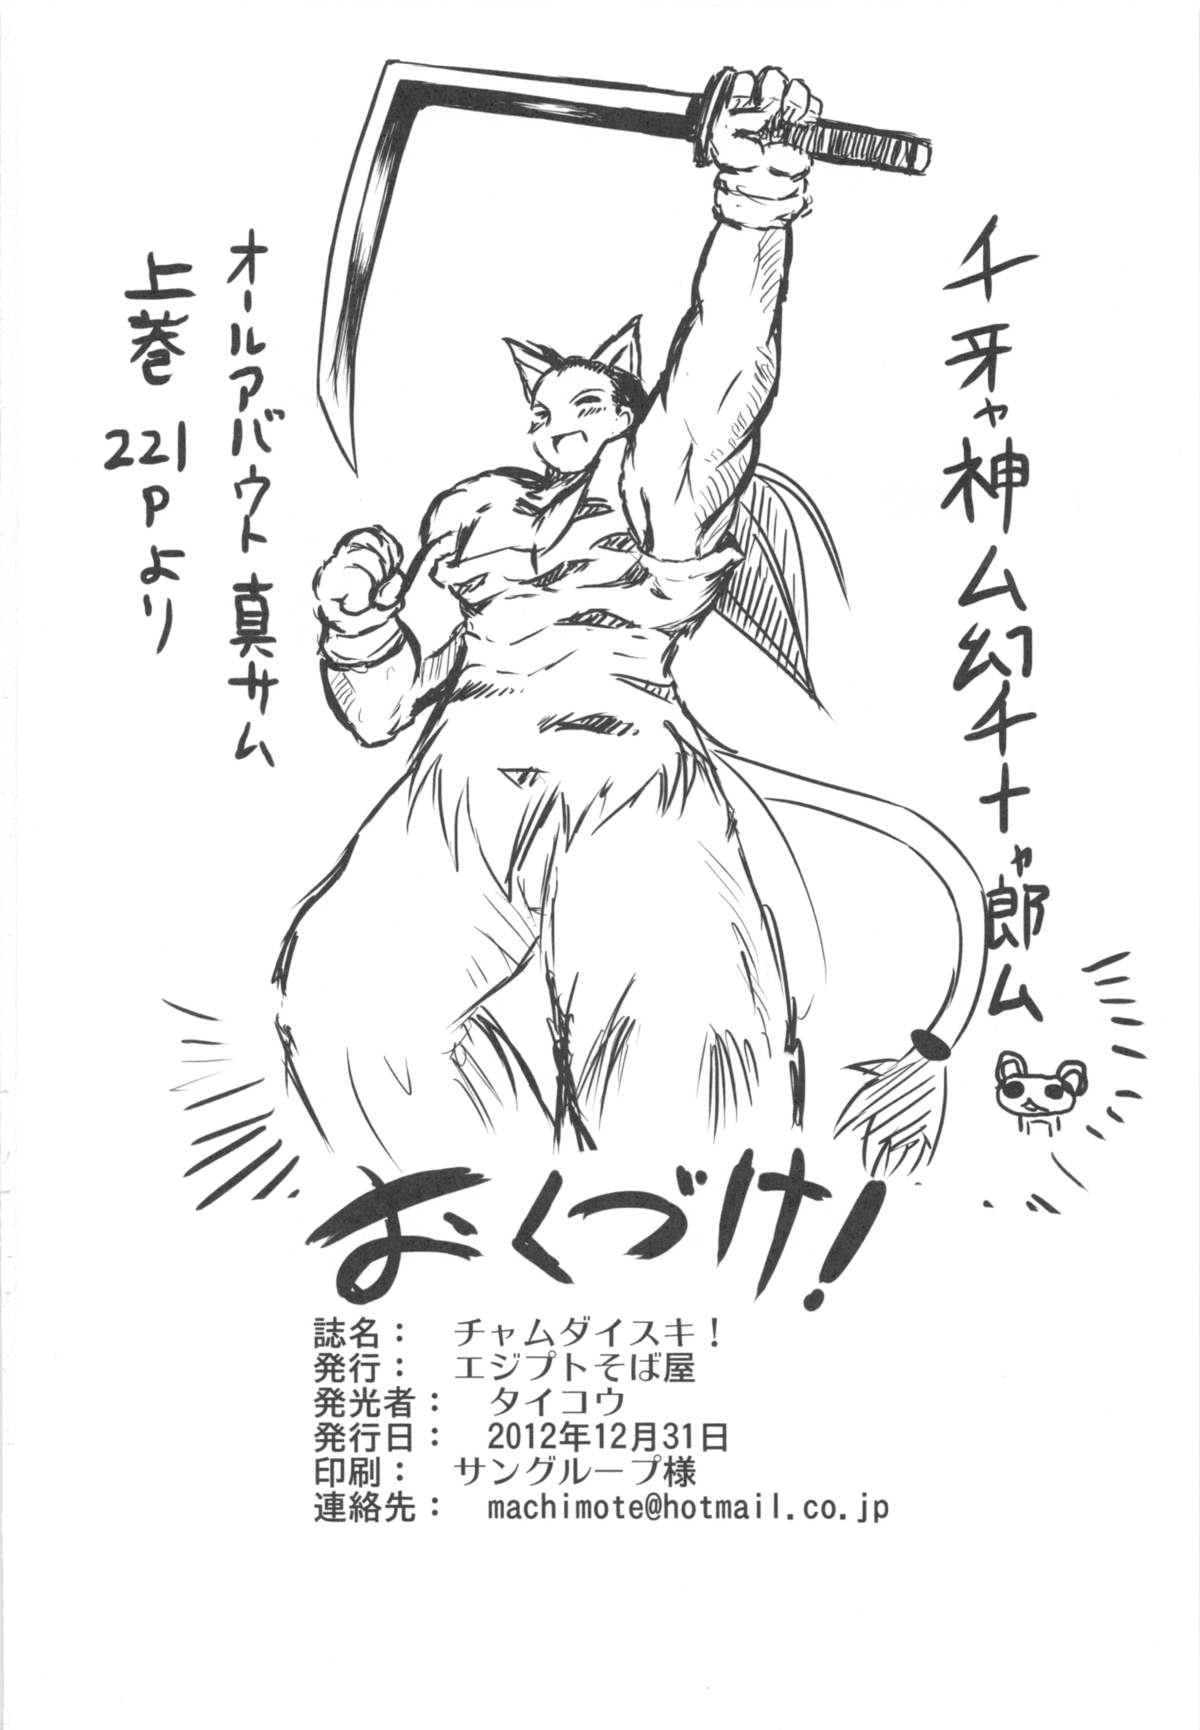 千牙ャ神ム幻十ャ郎ム
オールアバウト真サム
上巻 221pより
おくづけ!
誌名： チャムダイスキ！
発行： エジプトそば屋
発光者： タイコウ
発行日： 2012年12月31日
印刷： サングループ様
連絡先： machimote@hotmail.co.jp